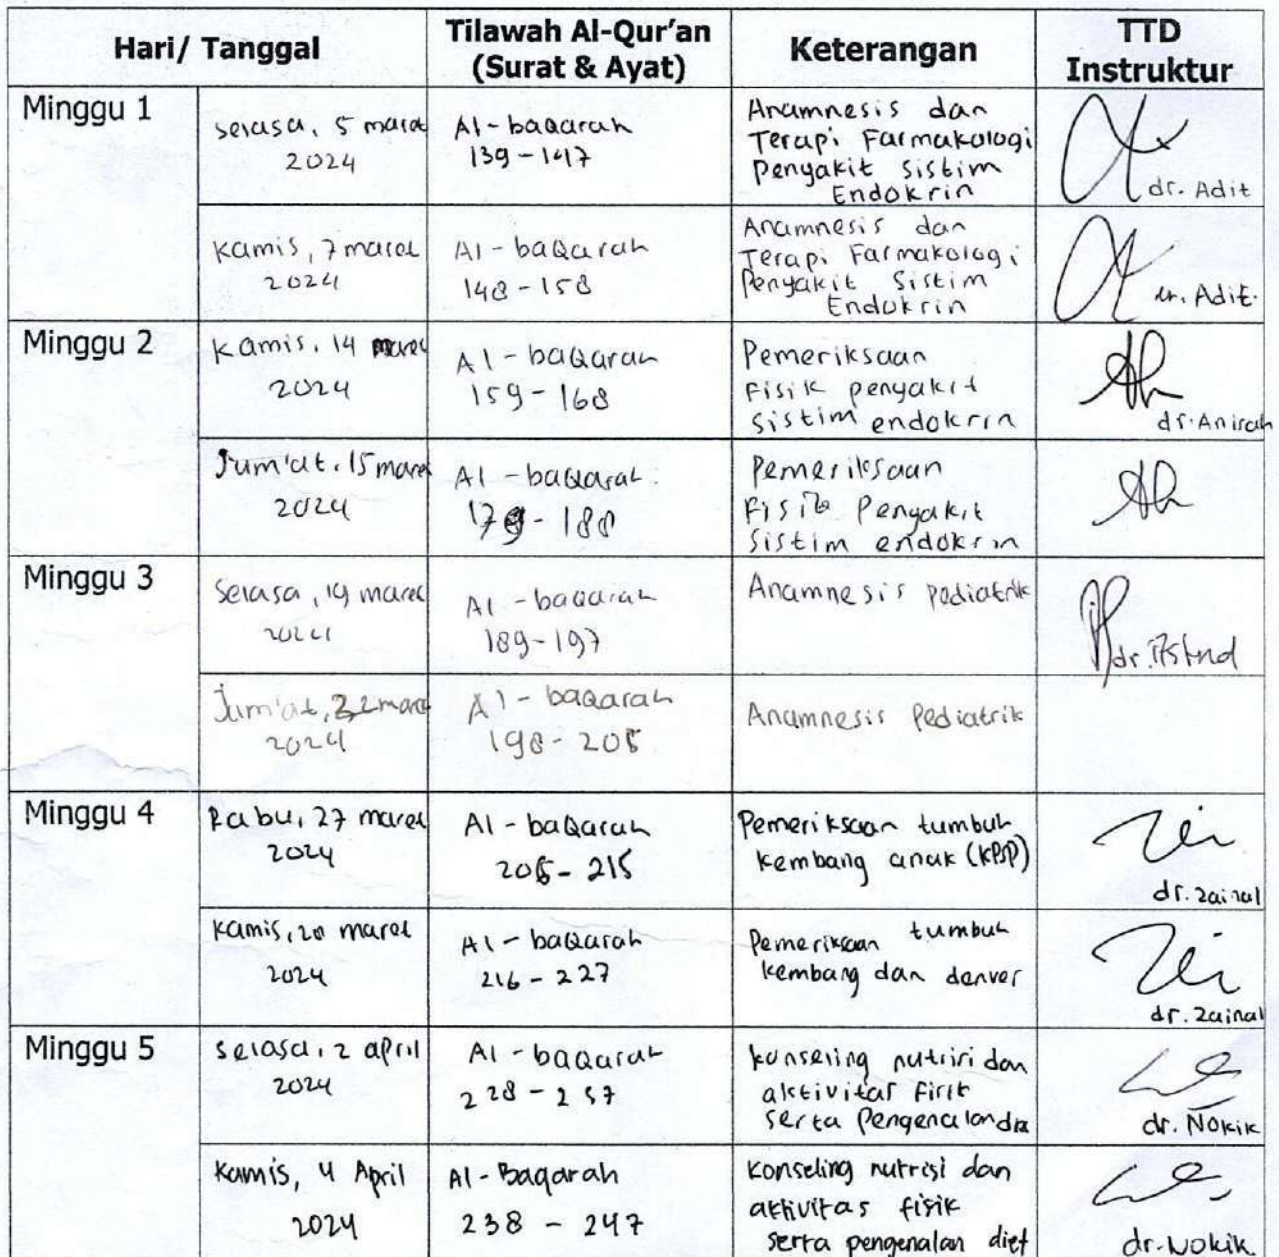 Hari/ Tanggal
Tilawah Al-Qur'an
(Surat & Ayat)
Keterangan
TTD
Instruktur
Minggu 1
selasa, 5 maret
2024
Al-baqarah
139-147
Anamnesis dan
Terapi Farmakologi
Penyakit Sistim
Endokrin
dr. Adit
Kamis, 7 maret
2024
Al-baqarah
148-158
Anamnesis dan
Terapi Farmakologi
Penyakit Sistim
Endokrin
dr. Adit
Minggu 2
Kamis, 14 maret
2024
Al-baqarah
159-168
Pemeriksaan
Fisik penyakit
sistim endokrin
dr. Anisah
Jum'at, 15 maret
2024
Al-baqarah
188
Pemeriksaan
Fisik Penyakit
Sistim endokrin
Minggu 3
Selasa, 19 maret
2024
Al-baqarah
189-197
Anamnesis pediatrik
dr.
Jum'at, 22 maret
2024
Al-baqarah
198-205
Anamnesis Pediatrik
Minggu 4
Rabu, 27 maret
2024
Al-baqarah
206-215
Pemeriksaan tumbuh
kembang anak (KPSP)
dr. zainal
Kamis, 28 maret
2024
Al-baqarah
216-227
Pemeriksaan tumbuh
kembang dan denver
dr. zainal
Minggu 5
selasa, 2 april
2024
Al-baqarah
228-237
konseling nutrisi dan
aktivitas fisik
serta Pengenalan
dr. Nokik
Kamis, 4 April
2024
Al-Baqarah
238 - 247
konseling nutrisi dan
aktivitas fisik
serta pengenalan diet
dr. Nokik